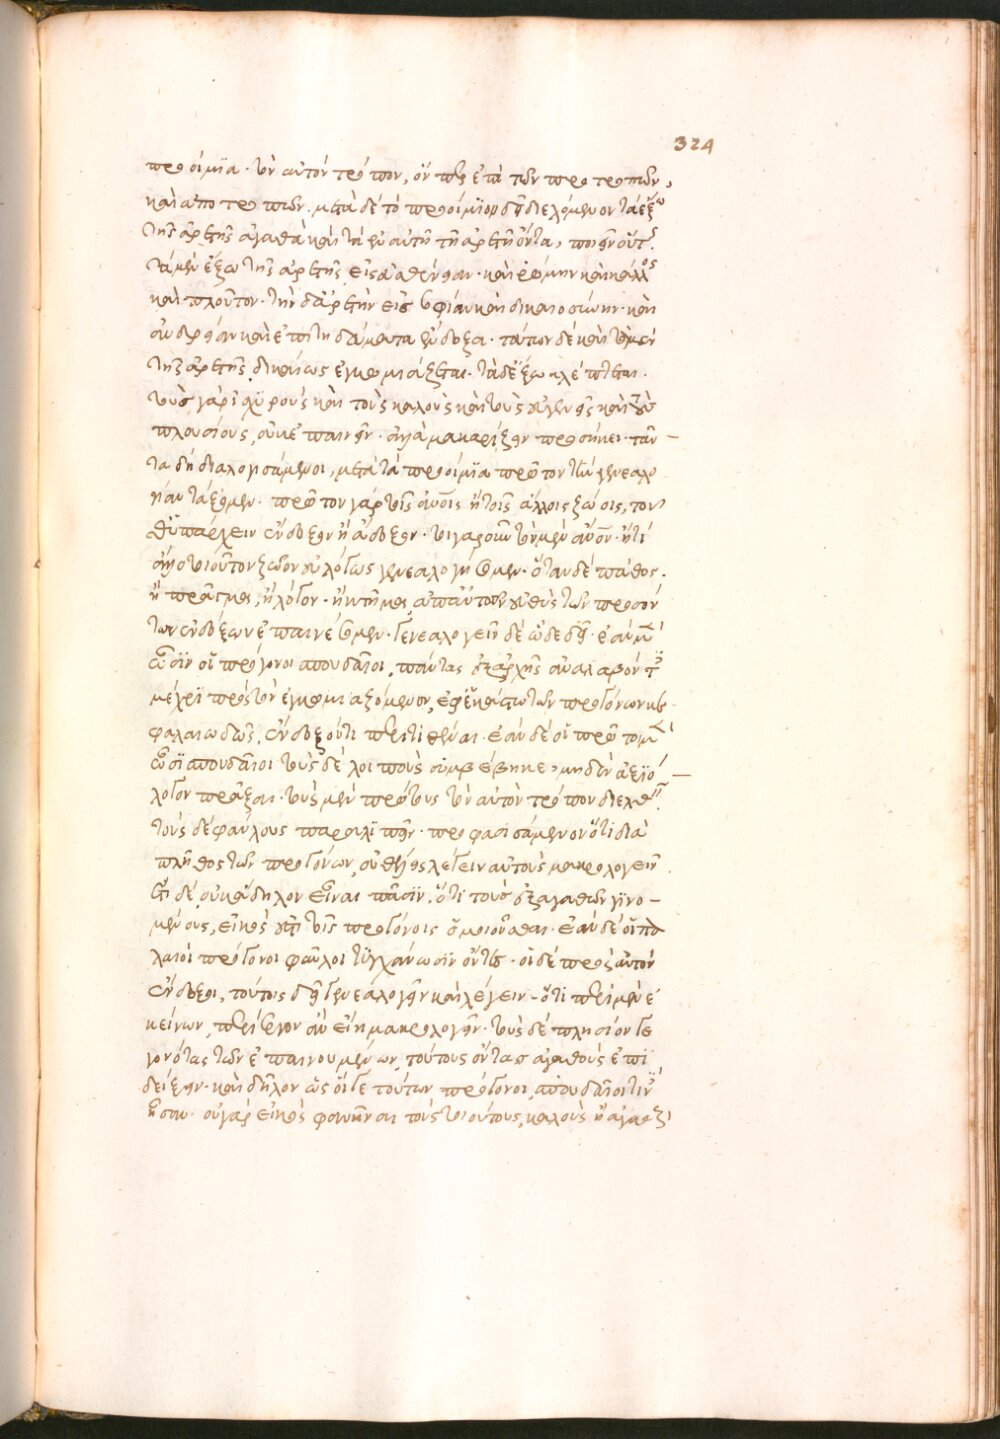 324
προοίμια· τὸν αὐτὸν τρόπον, ὅνπερ ἐπὶ τῶν προτροπῶν,
καὶ αποτροπῶν. μετὰ δὲ τὸ προοίμιον δεῖ διελόμενον τὰ ἔξω
τῆς ἀρετῆς ἀγαθὰ καὶ τὰ ἐν αὐτῇ τῇ ἀρετῇ ὄντα, ποιεῖν οὕτως.
τὰ μὲν ἔξω τῆς ἀρετῆς εἰς εὐγένειαν· καὶ ῥώμην καὶ κάλλος
καὶ πλοῦτον· τὴν δ' ἀρετὴν εἰς σοφίαν καὶ δικαιοσύνην· καὶ
ανδρείαν καὶ ἐπιτηδεύματα ἔνδοξα· τούτων δὲ καὶ τὰ μὲν
τῆς ἀρετῆς δικαίως ἐγκωμιάζεται. τὰ δ' ἔξω κλέπτεται.
τοὺς γὰρ ἰσχυροὺς καὶ τοὺς καλοὺς καὶ τοὺς εὐγενεῖς καὶ τοὺς
πλουσίους, οὐκ ἐπαινεῖν· ἀλλὰ μακαρίζειν προσήκει· ταῦ-
τα δὴ διαλογισάμενοι, μετὰ τὰ προοίμια πρῶτον τὴν γενεαλο
γίαν τάξομεν· πρῶτον γὰρ τοῖς ἀνθρώποις ἢ τοῖς ἄλλοις ζώοις, τοῦ
θ' ὑπάρχειν ἔνδοξον ἢ ἄδοξον· τοιγαροῦν τὸν μὲν ἄνθρωπον· ἤ τι
ἄλλο τοιοῦτον ζῶον εὐλόγως γενεαλογήσομεν· ὅταν δὲ πάθος·
ἢ πρᾶγμα, ἢ λόγον· ἢ κτῆμα, απ' αὐτοῦ εὐθὺς τῶν προσόν
των ἐνδόξων ἐπαινέσομεν· γενεαλογεῖν δὲ ὧδε δεῖ· ἐὰν μὲν
ὦσιν οἱ πρόγονοι σπουδαῖοι, πάντας ἐξ ἀρχῆς ἀναλαβόντα
μέχρι πρὸς τὸν ἐγκωμιαζόμενον, ἐφ' ἑκάστω τῶν προγόνων κε
φαλαιωδῶς, ἔνδοξόν τι περιτιθέναι· ἐὰν δὲ οἱ πρῶτοι μὲν
ὦσι σπουδαῖοι τοὺς δὲ λοιποὺς συμβέβηκε, μηδὲν ἀξιό-
λογον πρᾶξαι· τοὺς μὲν πρώτους τὸν αὐτὸν τρόπον διελθεῖν.
τοὺς δὲ φαύλους παραλιπεῖν· προφασισάμενον ὅτι διὰ
πλῆθος τῶν προγόνων, οὐ θέλεις λέγειν αὐτοὺς μακρολογεῖν
ἔτι δὲ, οὐκ ἄδηλον εἶναι πᾶσιν. ὅτι τοὺς ἐξ αγαθῶν γινο-
μένους, εἰκὸς ἐστι τοῖς προγόνοις ὁμοιοῦσθαι· ἐὰν δὲ οἱ πα
λαιοὶ πρόγονοι φαῦλοι τυγχάνωσιν ὄντες· οἱ δὲ πρὸς αὐτὸν
ἔνδοξοι, τούτους δεῖ γενεαλογεῖν καὶ λέγειν - ὅτι περὶ μὲν ἐ
κείνων, περίεργον ἂν εἴη μακρολογεῖν· τοὺς δὲ πλησίον γε
γονότας τῶν ἐπαινουμένων, τούτους ὄντας ἀγαθοὺς ἐπι
δείξειν· καὶ δῆλον ὡς οἵ γε τούτων πρόγονοι, σπουδαῖοι τινὲς
ἦσαν· οὐ γὰρ εἰκὸς φανῆναι τοὺς τοιούτους, καλοὺς ἢ ἀγαθοὺς